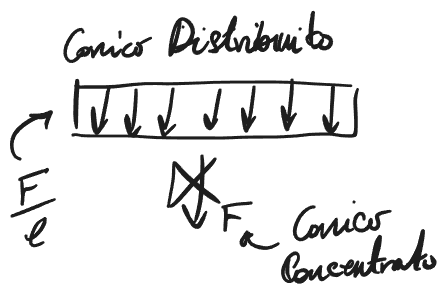 Carico Distribuito
F
l
F
Carico
Concentrato